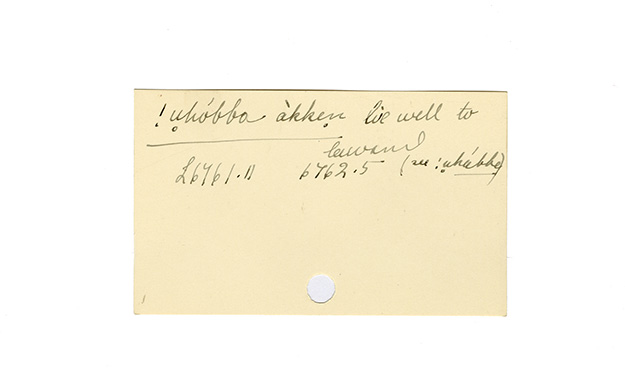 !ṵhóbba àkken lie well to
leeward
L6761.D 6762.5 (see !ṵhábba)